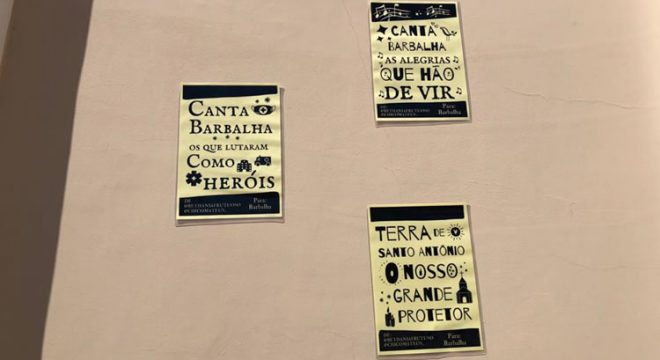 CANTA
BARBALHA
OS QUE LUTARAM
COMO
HERÓIS
DE
Para:
Barbalha
CANTA
BARBALHA
AS ALEGRIAS
QUE HÃO
DE VIR
DE
Para:
Barbalha
TERRA DE
SANTO ANTÔNIO
O NOSSO
GRANDE
PROTETOR
DE
Para:
Barbalha